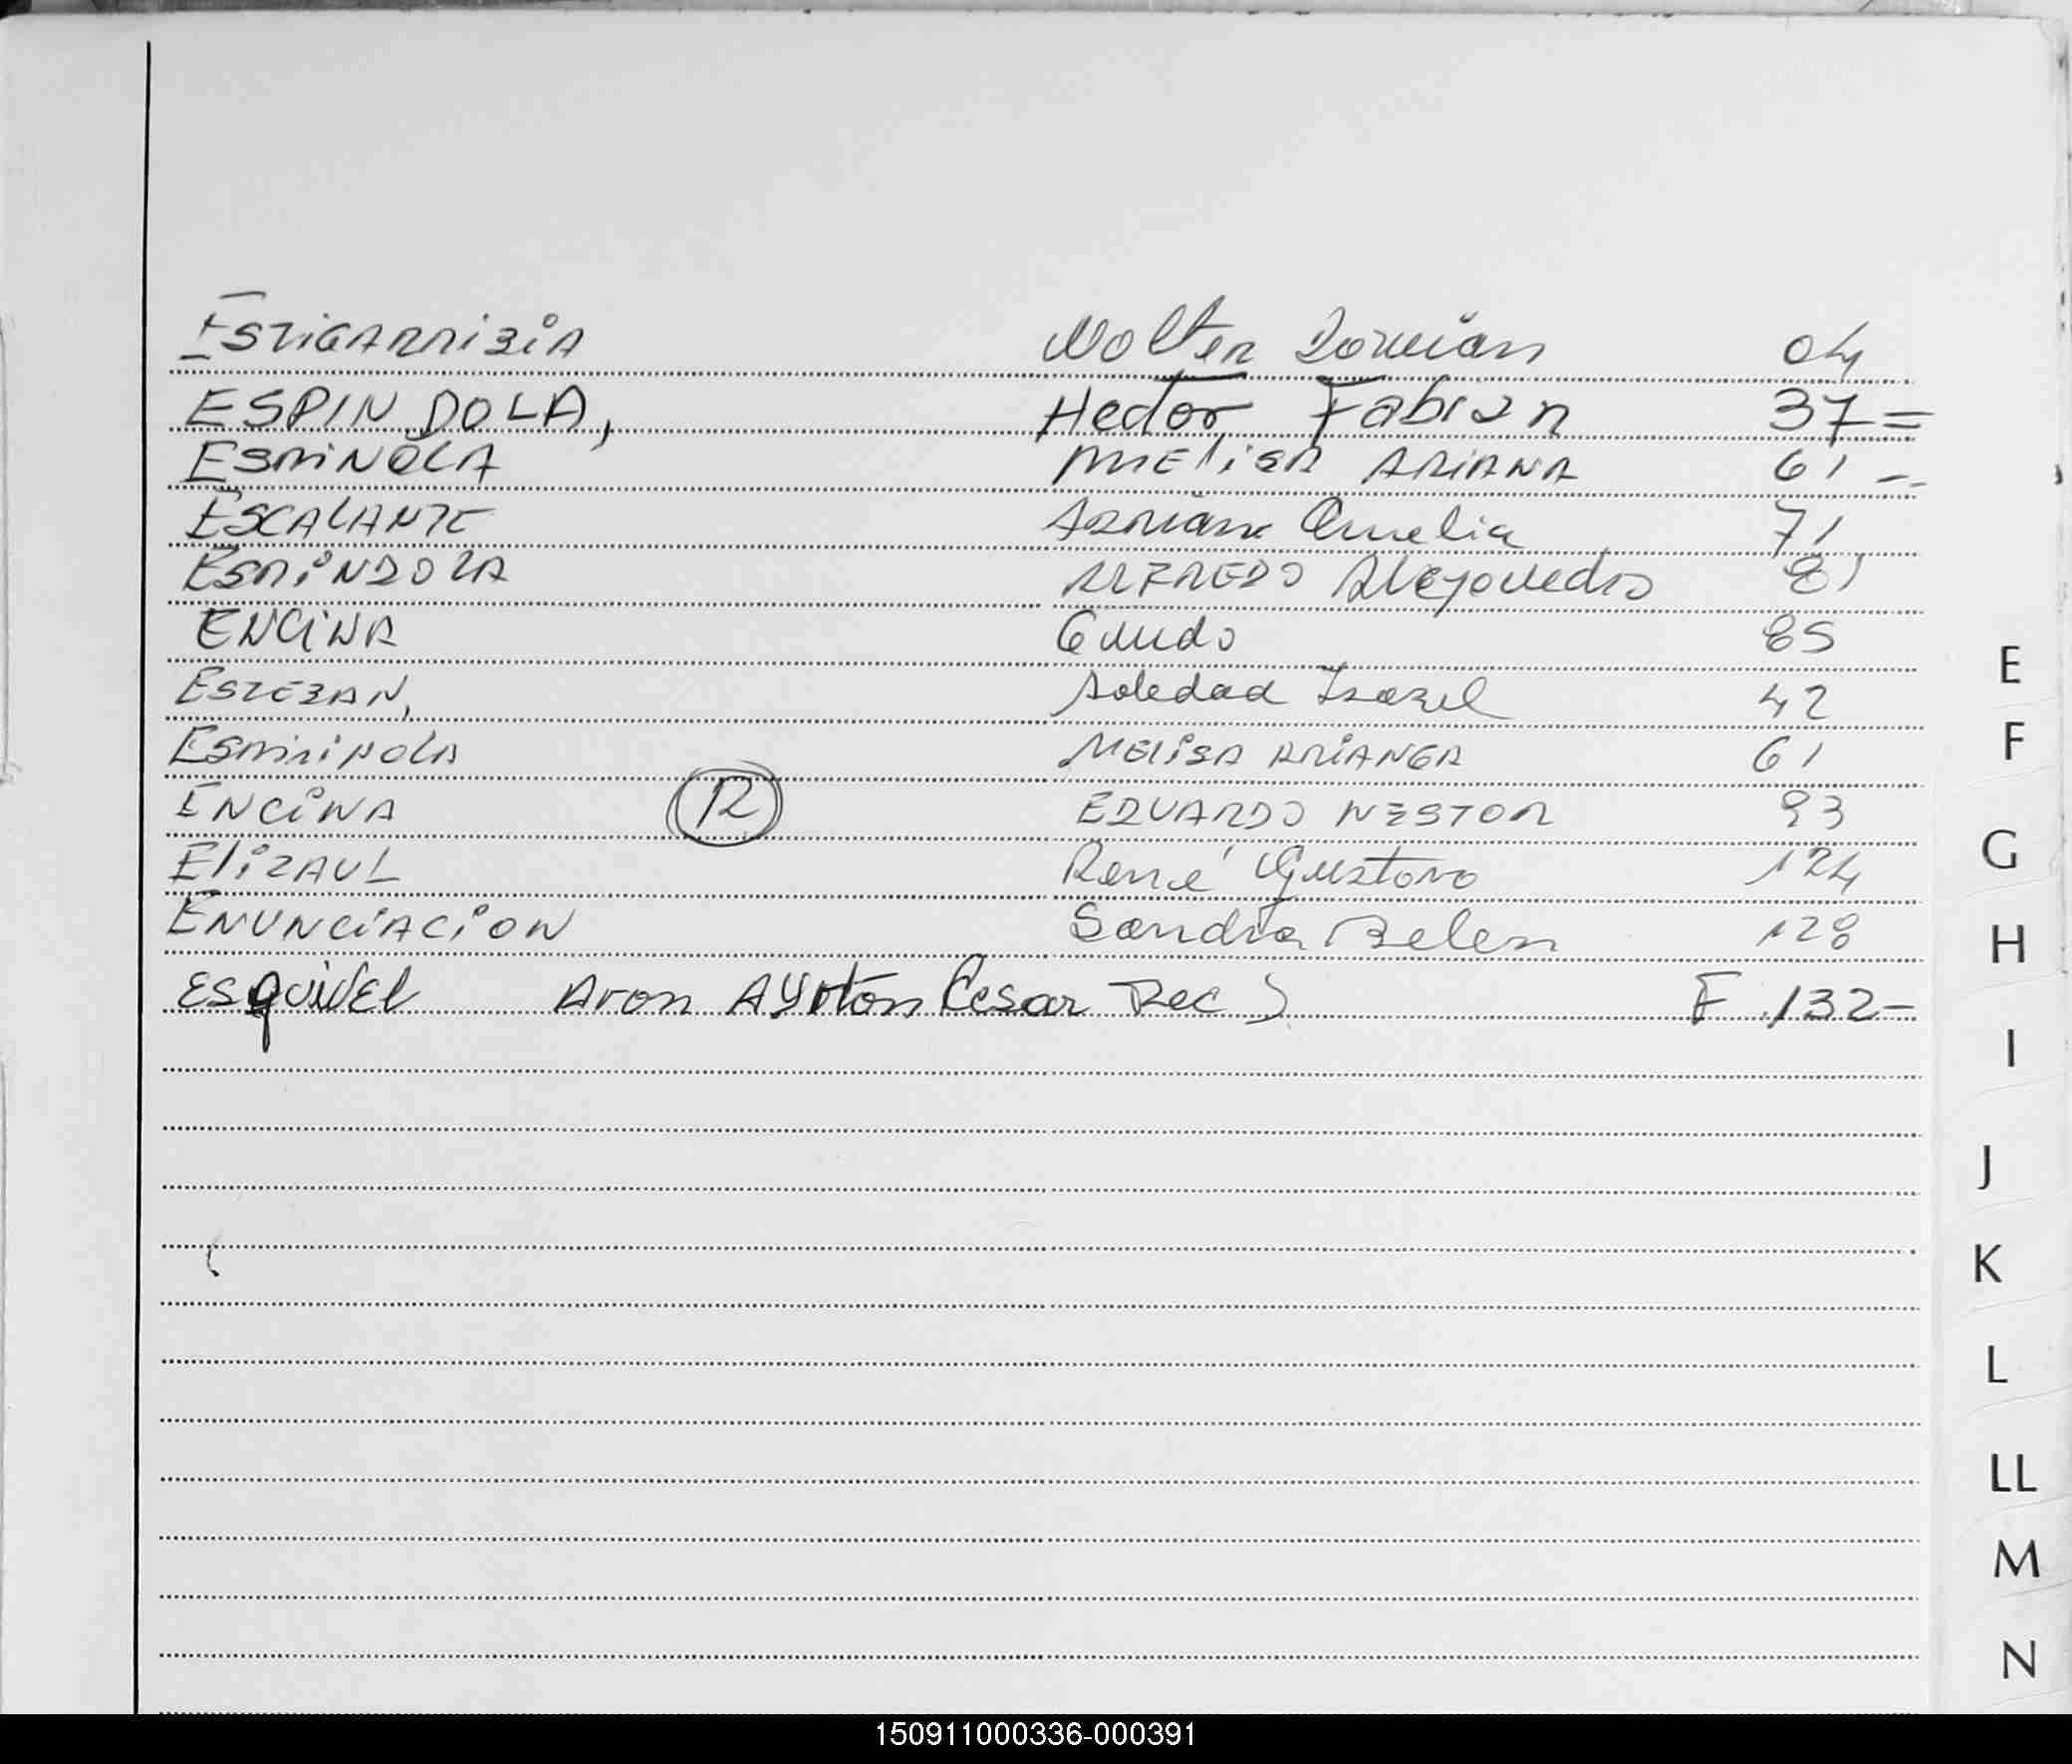 Estigarribia Wolter Domian 04
ESPINDOLA, Hector Fabian 37=
ESPINOLA MELISA ARIANA 61 --
ESCALANTE Adriana Amelia 71
ESPINDOLA ALFREDO Alejandro 81
ENCINA Guido 85
ESTEBAN, Soledad Isabel 42
ESPINOLA MELISA ARIANGA 61
ENCINA R EDUARDO NESTOR 93
ElizAUL René Gustavo 124
ENUNCIACION Sandra Belen 128
ESquivel Aron Ayrton Cesar Rec) F.132-
E
F
G
H
I
J
K
L
LL
M
N
150911000336-000391